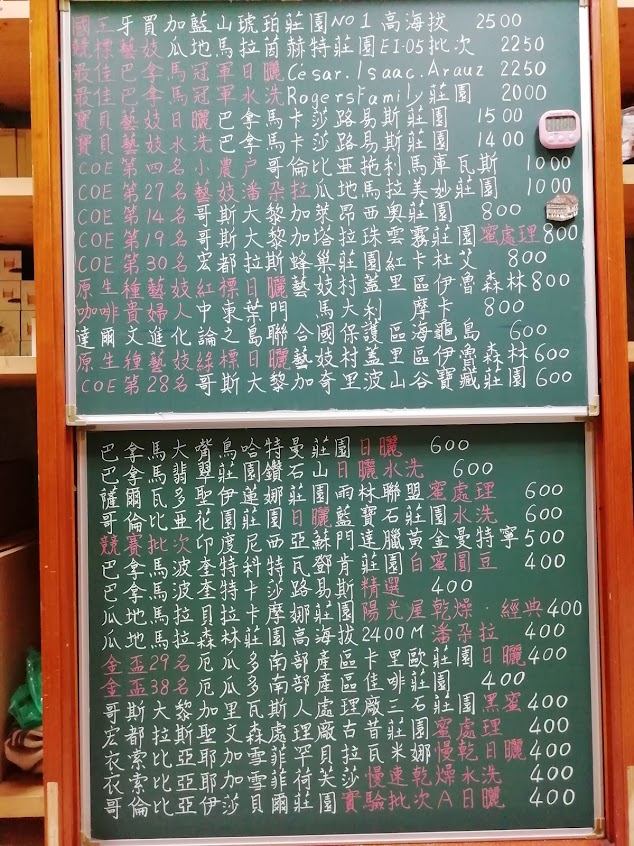 國王牙買加藍山琥珀莊園NO1高海拔 2500
競標藝妓瓜地馬拉茵赫特莊園EI-05批次 2250
最佳巴拿馬冠軍日曬César.Isaac.Arauz 2250
最佳巴拿馬冠軍水洗RogersFamily莊園 2000
寶貝藝妓日曬巴拿馬卡莎路易斯莊園 1500
寶貝藝妓水洗巴拿馬卡莎路易斯莊園 1400
COE第四名小農戶哥倫比亞拖利馬庫瓦斯 1000
COE第27名藝妓潘朶拉瓜地馬拉美妙莊園 1000
COE第14名哥斯大黎加萊昂西奧莊園 800
COE第19名哥斯大黎加塔拉珠雲霧莊園蜜處理800
COE第30名宏都拉斯蜂巢莊園紅卡杜艾 800
原生種藝妓紅標日曬藝妓村蓋里區伊魯森林800
咖啡貴婦人中東葉門 馬大利 摩卡 800
達爾文進化論之島聯合國保護區海龜島 600
原生種藝妓綠標日曬藝妓村蓋里區伊魯森林600
COE第28名哥斯大黎加奇里波山谷寶藏莊園600
巴拿馬大嘴鳥哈特曼莊園日曬 600
巴拿馬翡翠莊園鑽石山日曬水洗 600
薩爾瓦多聖伊蓮娜莊園雨林聯盟蜜處理 600
哥倫比亞花園莊園日曬藍寶石莊園水洗 600
競賽批次印度尼西亞蘇門達臘黃金曼特寧500
巴拿馬波奎特科特瓦鄧肯莊園白蜜圓豆 400
巴拿馬波奎特卡莎路易斯精選 400
瓜地馬拉貝拉卡摩娜莊園陽光屋乾燥·經典400
瓜地馬拉森林莊園高海拔2400M潘朶拉 400
金盃29名厄瓜多南部產區卡里歐莊園日曬400
金盃38名厄瓜多南部產區佳啡莊園 400
哥斯大黎加里瓦斯人處理廠三石莊園黑蜜400
宏都拉斯聖文森處理廠古昔莊園蜜處理 400
衣索比亞耶加雪菲罕貝拉瓦米娜慢乾日曬400
衣索比亞耶加雪菲荷芙莎慢速乾燥水洗 400
哥倫比亞伊莎貝爾莊園實驗批次A日曬 400